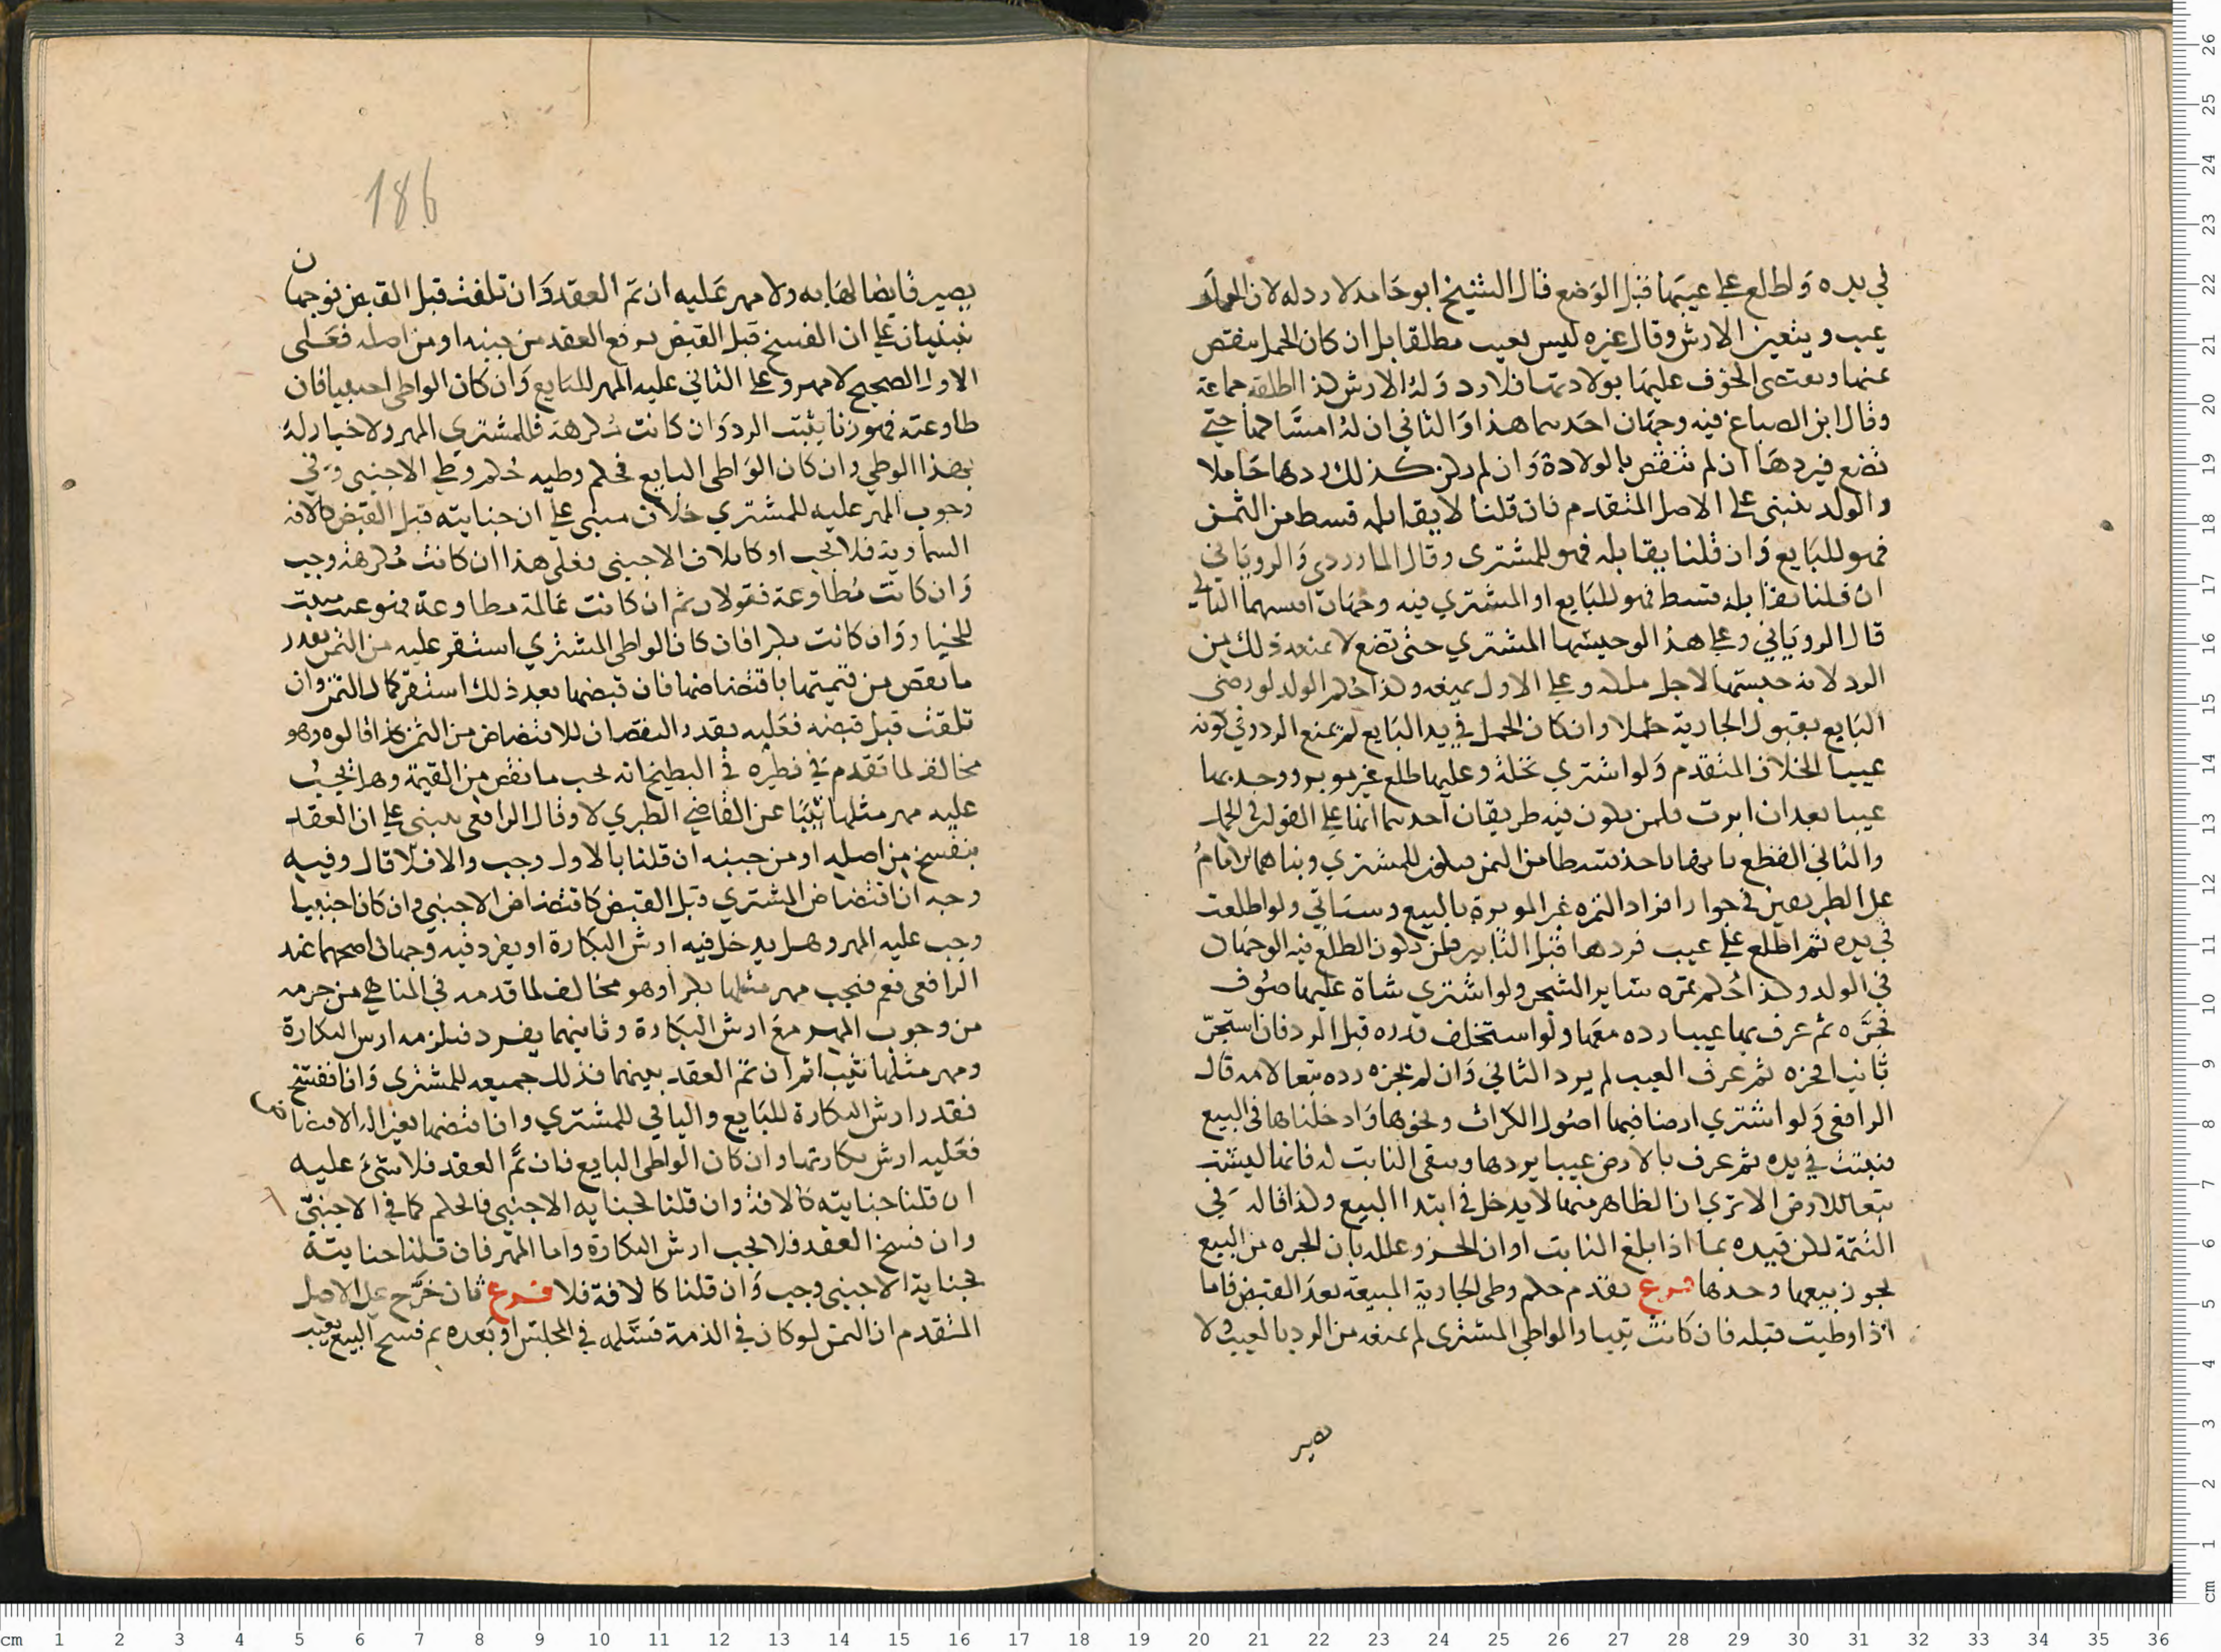 في يده واطلع على عيبها قبل الوضع قال الشيخ ابو حامد لا رد له لان الحمل
عيب ويتعين الارش وقال غيره ليس بعيب مطلقا بل ان كان الحمل ينقص
عنها ويقتضي الخوف عليها بولادتها فلا رد وله الارش كذا اطلقه جماعة
وقال ابن الصباغ فيه وجهان احدهما هذا والثاني ان له امساكها حتى
تضع فيردها ان لم تنقص بالولادة وان لم يكن كذلك ردها حاملا
والولد ينبني على الاصل المتقدم فان قلنا لا يقابله قسط من الثمن
فهو للبايع وان قلنا يقابله فهو للمشتري وقال الماوردي والروياني
ان قلنا يقابله قسط فهو للبايع او المشتري فيه وجهان اقيسهما الثاني
قال الروياني وعلى هذا لو حبسها المشتري حتى تضع لا يمنعه ذلك من
الرد لانه حبسها لاجل ملكه وعلى الاول يمنعه وكذا حكم الولد لو رضي
البايع بقبول الجارية حملا وان كان الحمل في يد البايع لم يمنع الرد وفي كونه
عيبا الخلاف المتقدم ولو اشترى نخلة وعليها طلع غير موبر ووجد بها
عيبا بعد ان ابرت فلمن يكون فيه طريقان احدهما انها على القولين في الحمل
والثاني القطع بانها تاخذ قسطا من الثمن فيكون للمشتري وبناهما الامام
على الطريقين في جواز افراد الثمرة غير الموبرة بالبيع وستاتي ولو اطلعت
في يده ثم اطلع على عيب فردها قبل التابير فلمن يكون الطلع فيه الوجهان
في الولد وكذا حكم ثمره ساير الشجر ولو اشترى شاة عليها صوف
فجزه ثم عرف بها عيبا رده معها ولو استخلف قدره قبل الرد فان استجز
ثانيا فجزه ثم عرف العيب لم يرد الثاني وان لم يجزه رده تبعا لامه قال
الرافعي ولو اشترى ارضا فيها اصول الكراث ونحوها وادخلناها في البيع
فنبتت في يده ثم عرف بالارض عيبا يردها ويبقى النابت له فانها ليست
تبعا للارض الا ترى ان الظاهر منها لا يدخل في ابتدا البيع وكذا قاله في
التتمة لكن قيده بما اذا بلغ النابت اوان الجز وعلله بان الجزه من البيع
يجوز بيعها وحدها فرع تقدم حكم وطي الجارية المبيعة بعد القبض فاما
اذا وطيت قبله فان كانت ثيبا والواطي المشتري لم يمنعه من الرد بالعيب ولا
يصير
186
يصير قابضا لها به ولا مهر عليه ان تم العقد وان تلفت قبل القبض فوجهان
ينبنيان على ان الفسخ قبل القبض يرفع العقد من حينه او من اصله فعلى
الاول الصحيح لا مهر وعلى الثاني عليه المهر للبايع وان كان الواطي اجنبيا فان
طاوعته فهو زنا يثبت الرد وان كانت مكرهة فللمشتري المهر ولا خيار له
بهذا الوطي وان كان الواطي البايع فحكم وطيه حكم وطي الاجنبي وفي
وجوب المهر عليه للمشتري خلاف مبني على ان جنايته قبل القبض كالافه
السماوية فلا يجب او كاتلاف الاجنبي فعلى هذا ان كانت مكرهة وجب
وان كانت مطاوعة فقولان ثم ان كانت عالمة مطاوعة فهو عيب مثبت
للخيار وان كانت بكرا فان كان الواطي المشتري استقر عليه من الثمن بقدر
ما نقص من قيمتها باقتضاضها فان قبضها بعد ذلك استقر كمال الثمن وان
تلفت قبل قبضه فعليه بقدر النقصان للاقتضاض من الثمن كذا قالوه وهو
مخالف لما تقدم في نظيره في البطيخ انه يجب ما نقص من القيمة وهل يجب
عليه مهر مثلها ثيبا عن القاضي الطبري لا وقال الرافعي ينبني على ان العقد
ينفسخ من اصله او من حينه ان قلنا بالاول وجب والا فلا قال وفيه
وجه ان اقتضاض المشتري قبل القبض كاقتضاض الاجنبي وان كان اجنبيا
وجب عليه المهر وهل يدخل فيه ارش البكارة او يفرد فيه وجهان اصحهما عند
الرافعي نعم فيجب مهر مثلها بكرا وهو مخالف لما قدمه في المناهي من جزمه
من وجوب المهر مع ارش البكارة وثانيهما يفرد فيلزمه ارش البكارة
ومهر مثلها ثيبا ثم ان تم العقد بينهما فذلك جميعه للمشتري وان انفسخ
فقدر ارش البكارة للبايع والباقي للمشتري وان اقتضها بغير آلة الاقتضاض
فعليه ارش بكارتها وان كان الواطي البايع فان تم العقد فلا شئ عليه
ان قلنا جنايته كالافة وان قلنا كجناية الاجنبي فالحكم كما في الاجنبي
وان فسخ العقد فلا يجب ارش البكارة واما المهر فان قلنا جنايته
كجناية الاجنبي وجب وان قلنا كالافة فلا فرع فان خرج على الاصل
المتقدم ان الثمن لو كان في الذمة فسلمه في المجلس او بعده ثم فسخ البيع بعيب